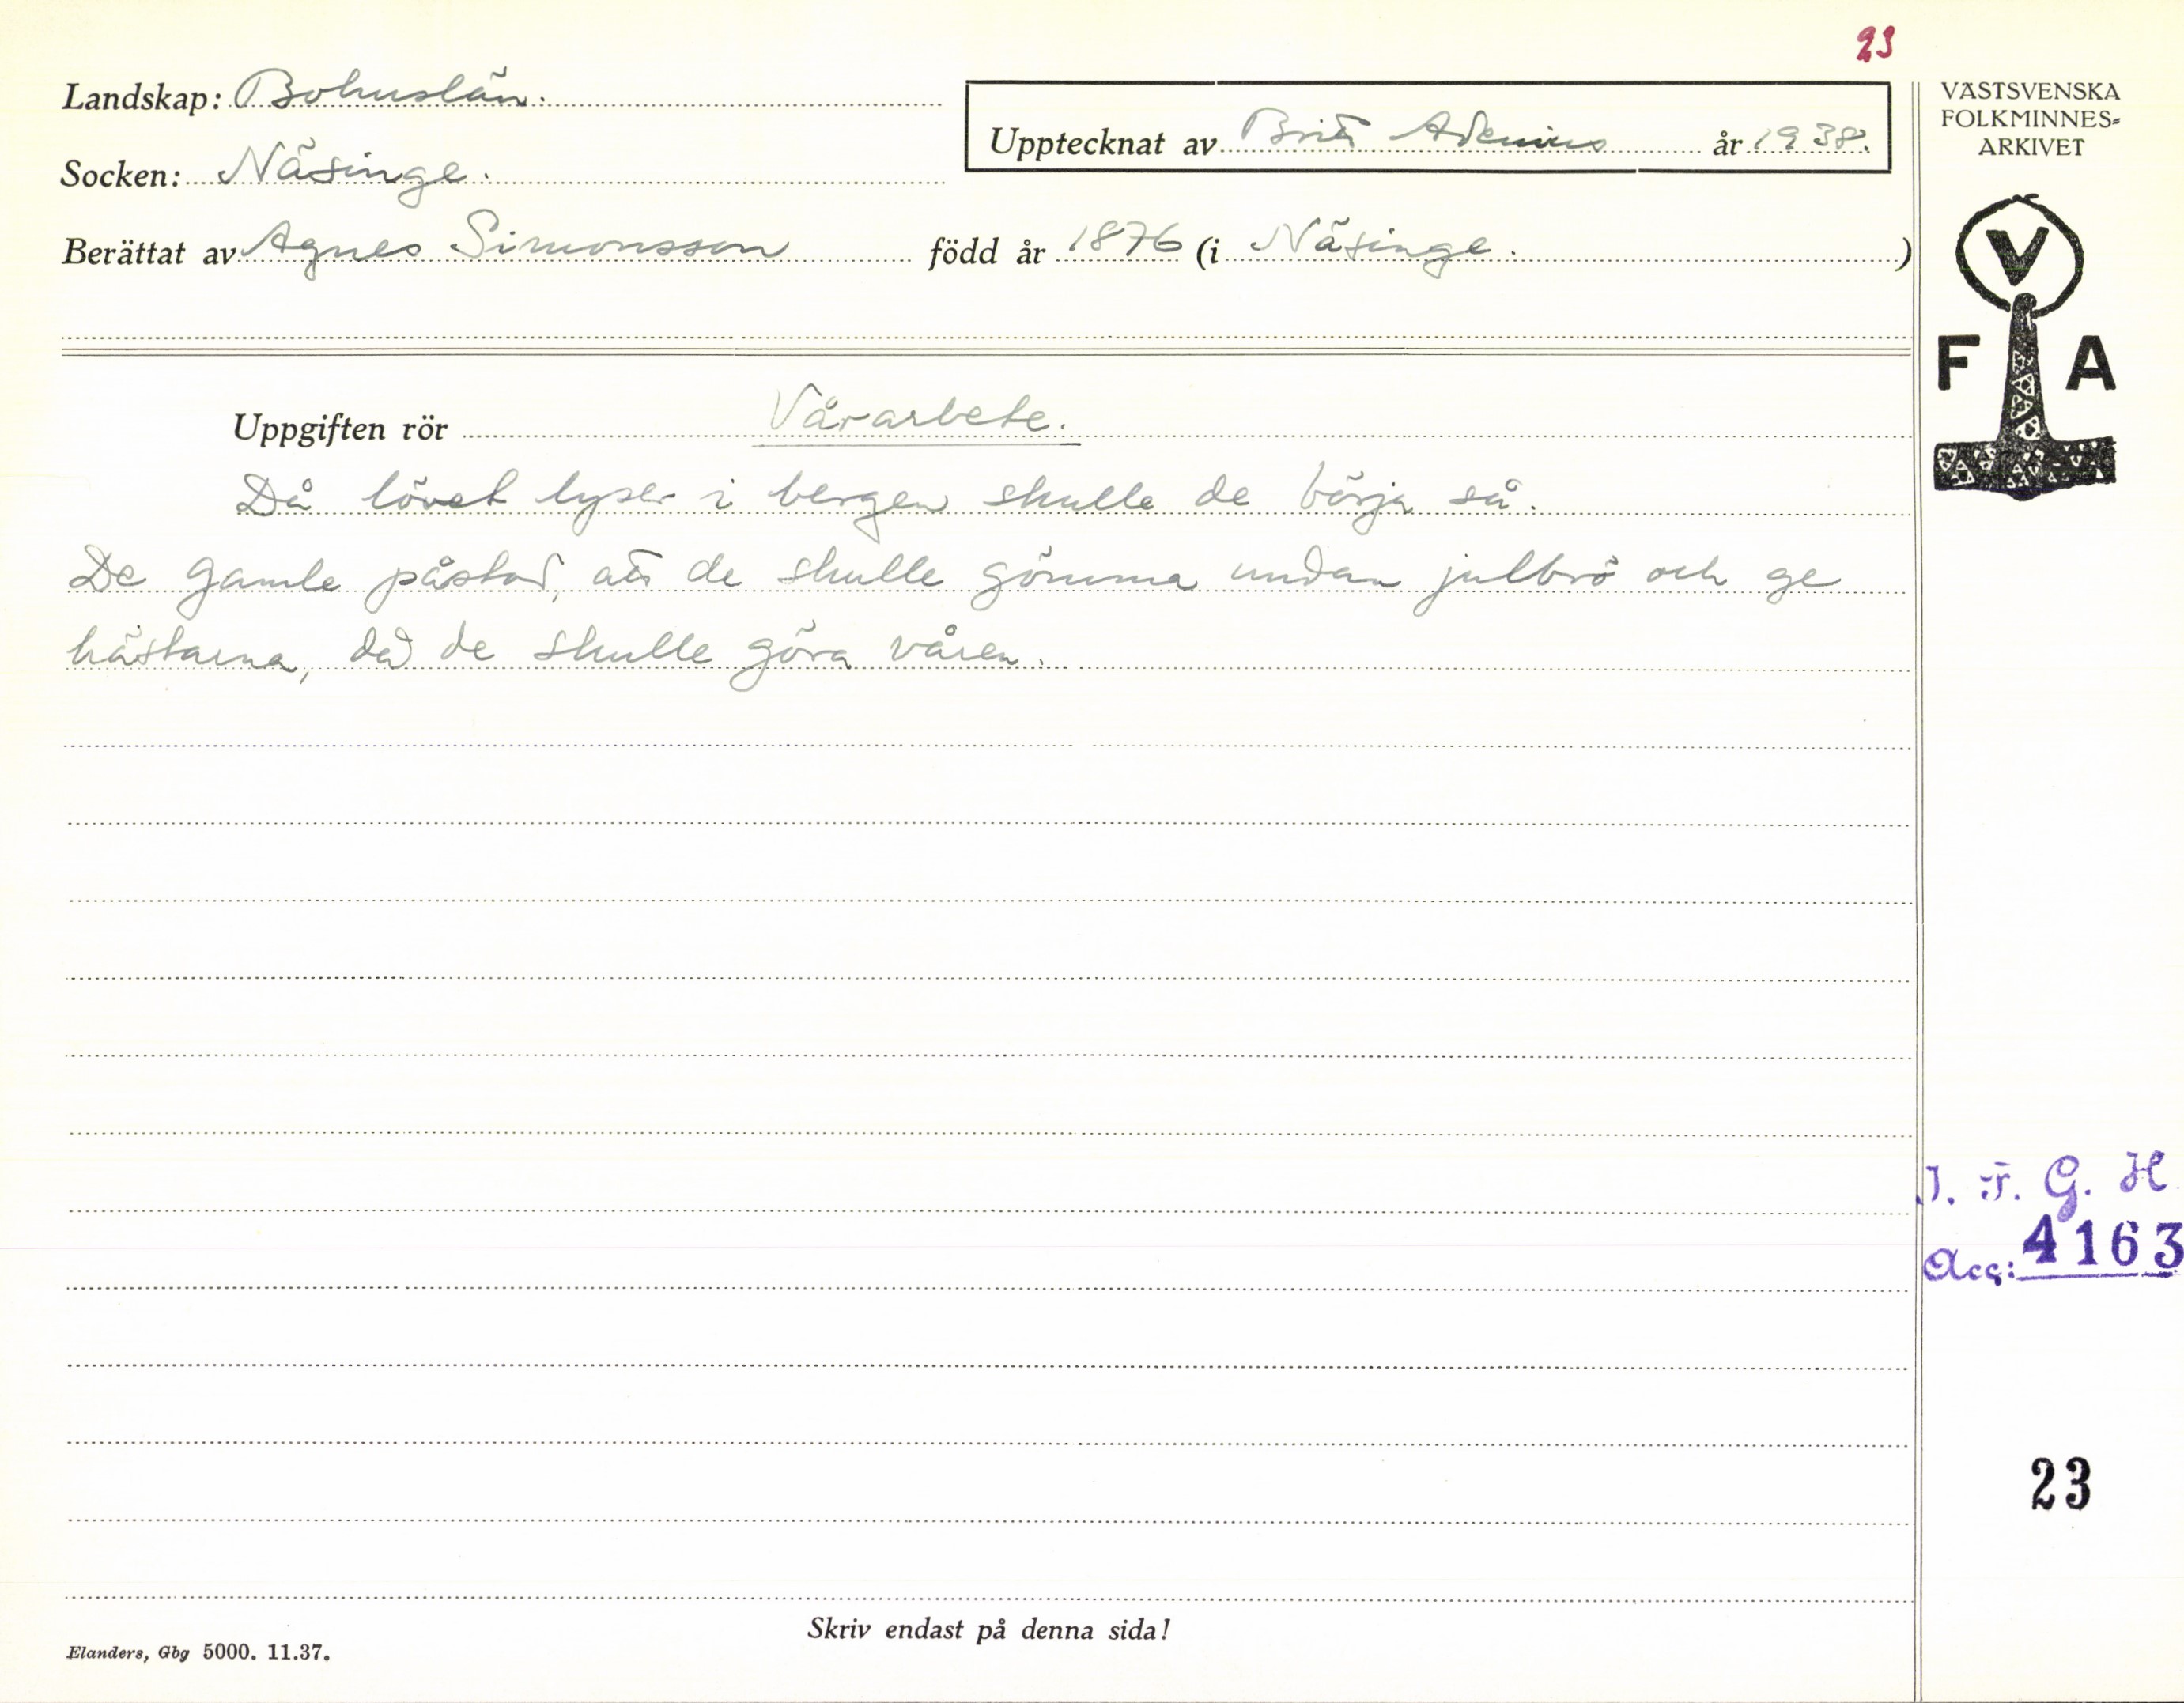 23
Landskap: Bohuslän.
Upptecknat av Brita Adenius år 1938.
Socken: Näsinge.
Berättat av Agnes Simonsson född år 1876 (i Näsinge. )
VÄSTSVENSKA
FOLKMINNES-
ARKIVET
V
F A
Uppgiften rör Vårarbete.
Då lövet lyser i bergen skulle de börja så.
De gamle påstod, att de skulle gömma undan julbrö och ge
hästarna, då de skulle göra våren.
I. F. G. H.
Acc: 4163
23
Skriv endast på denna sida!
Elanders, Gbg 5000. 11.37.